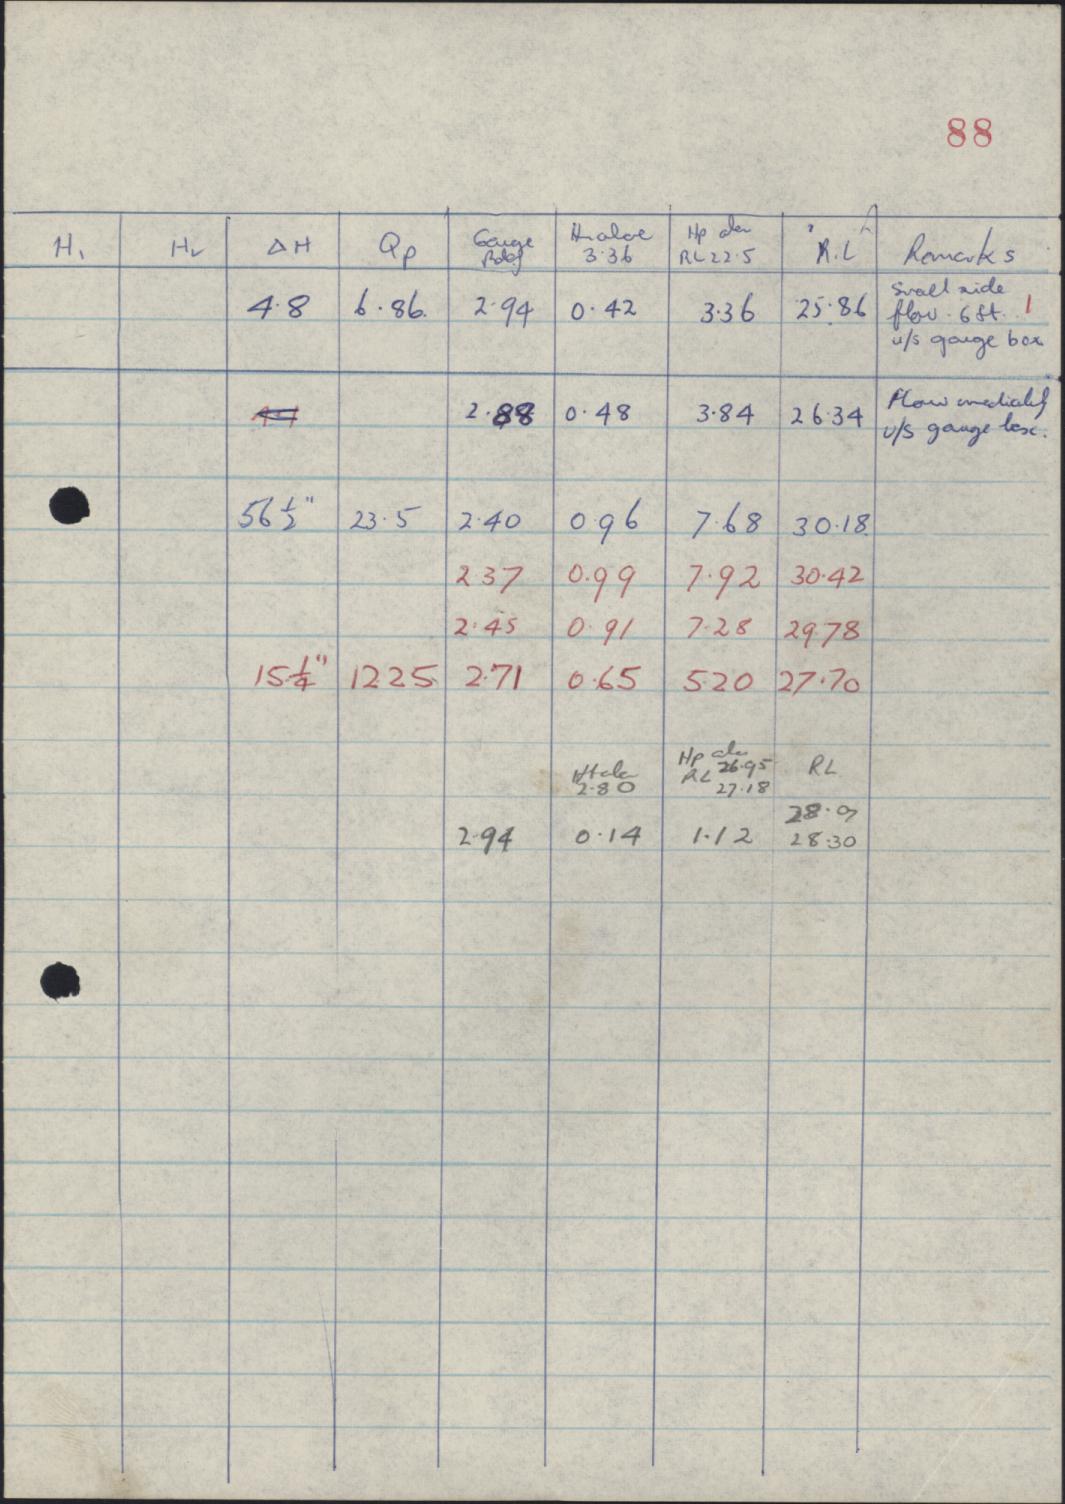 88
H₁ H₂ ΔH Qp Gauge Rdg H above 3.36 Hp above RL 22.5 R.L Remarks
4.8 6.86 2.94 0.42 3.36 25.86 Small side
flow 6ft. 1
u/s gauge box
2.88 0.48 3.84 26.34 Flow imediately
u/s gauge box.
56 1/2" 23.5 2.40 0.96 7.68 30.18
2.37 0.99 7.92 30.42
2.45 0.91 7.28 29.78
15 1/4" 12.25 2.71 0.65 5.20 27.70
H above 2.80 Hp above RL 26.95 27.18 RL
28.07
2.94 0.14 1.12 28.30